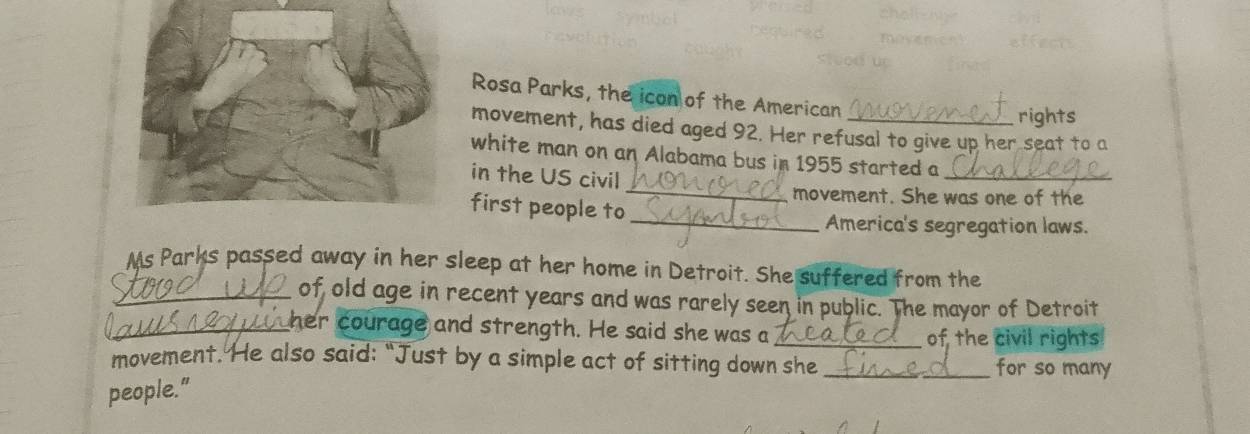 laws symbol praised challenge civil
revolution caught required movement effects
stood up fined
Rosa Parks, the icon of the American movemet rights
movement, has died aged 92. Her refusal to give up her seat to a
white man on an Alabama bus in 1955 started a Challege
in the US civil honored movement. She was one of the
first people to Symbol America's segregation laws.
Ms Parks passed away in her sleep at her home in Detroit. She suffered from the
Stood up of old age in recent years and was rarely seen in public. The mayor of Detroit
laws her courage and strength. He said she was a heated of the civil rights
movement. He also said: "Just by a simple act of sitting down she fined for so many
people."